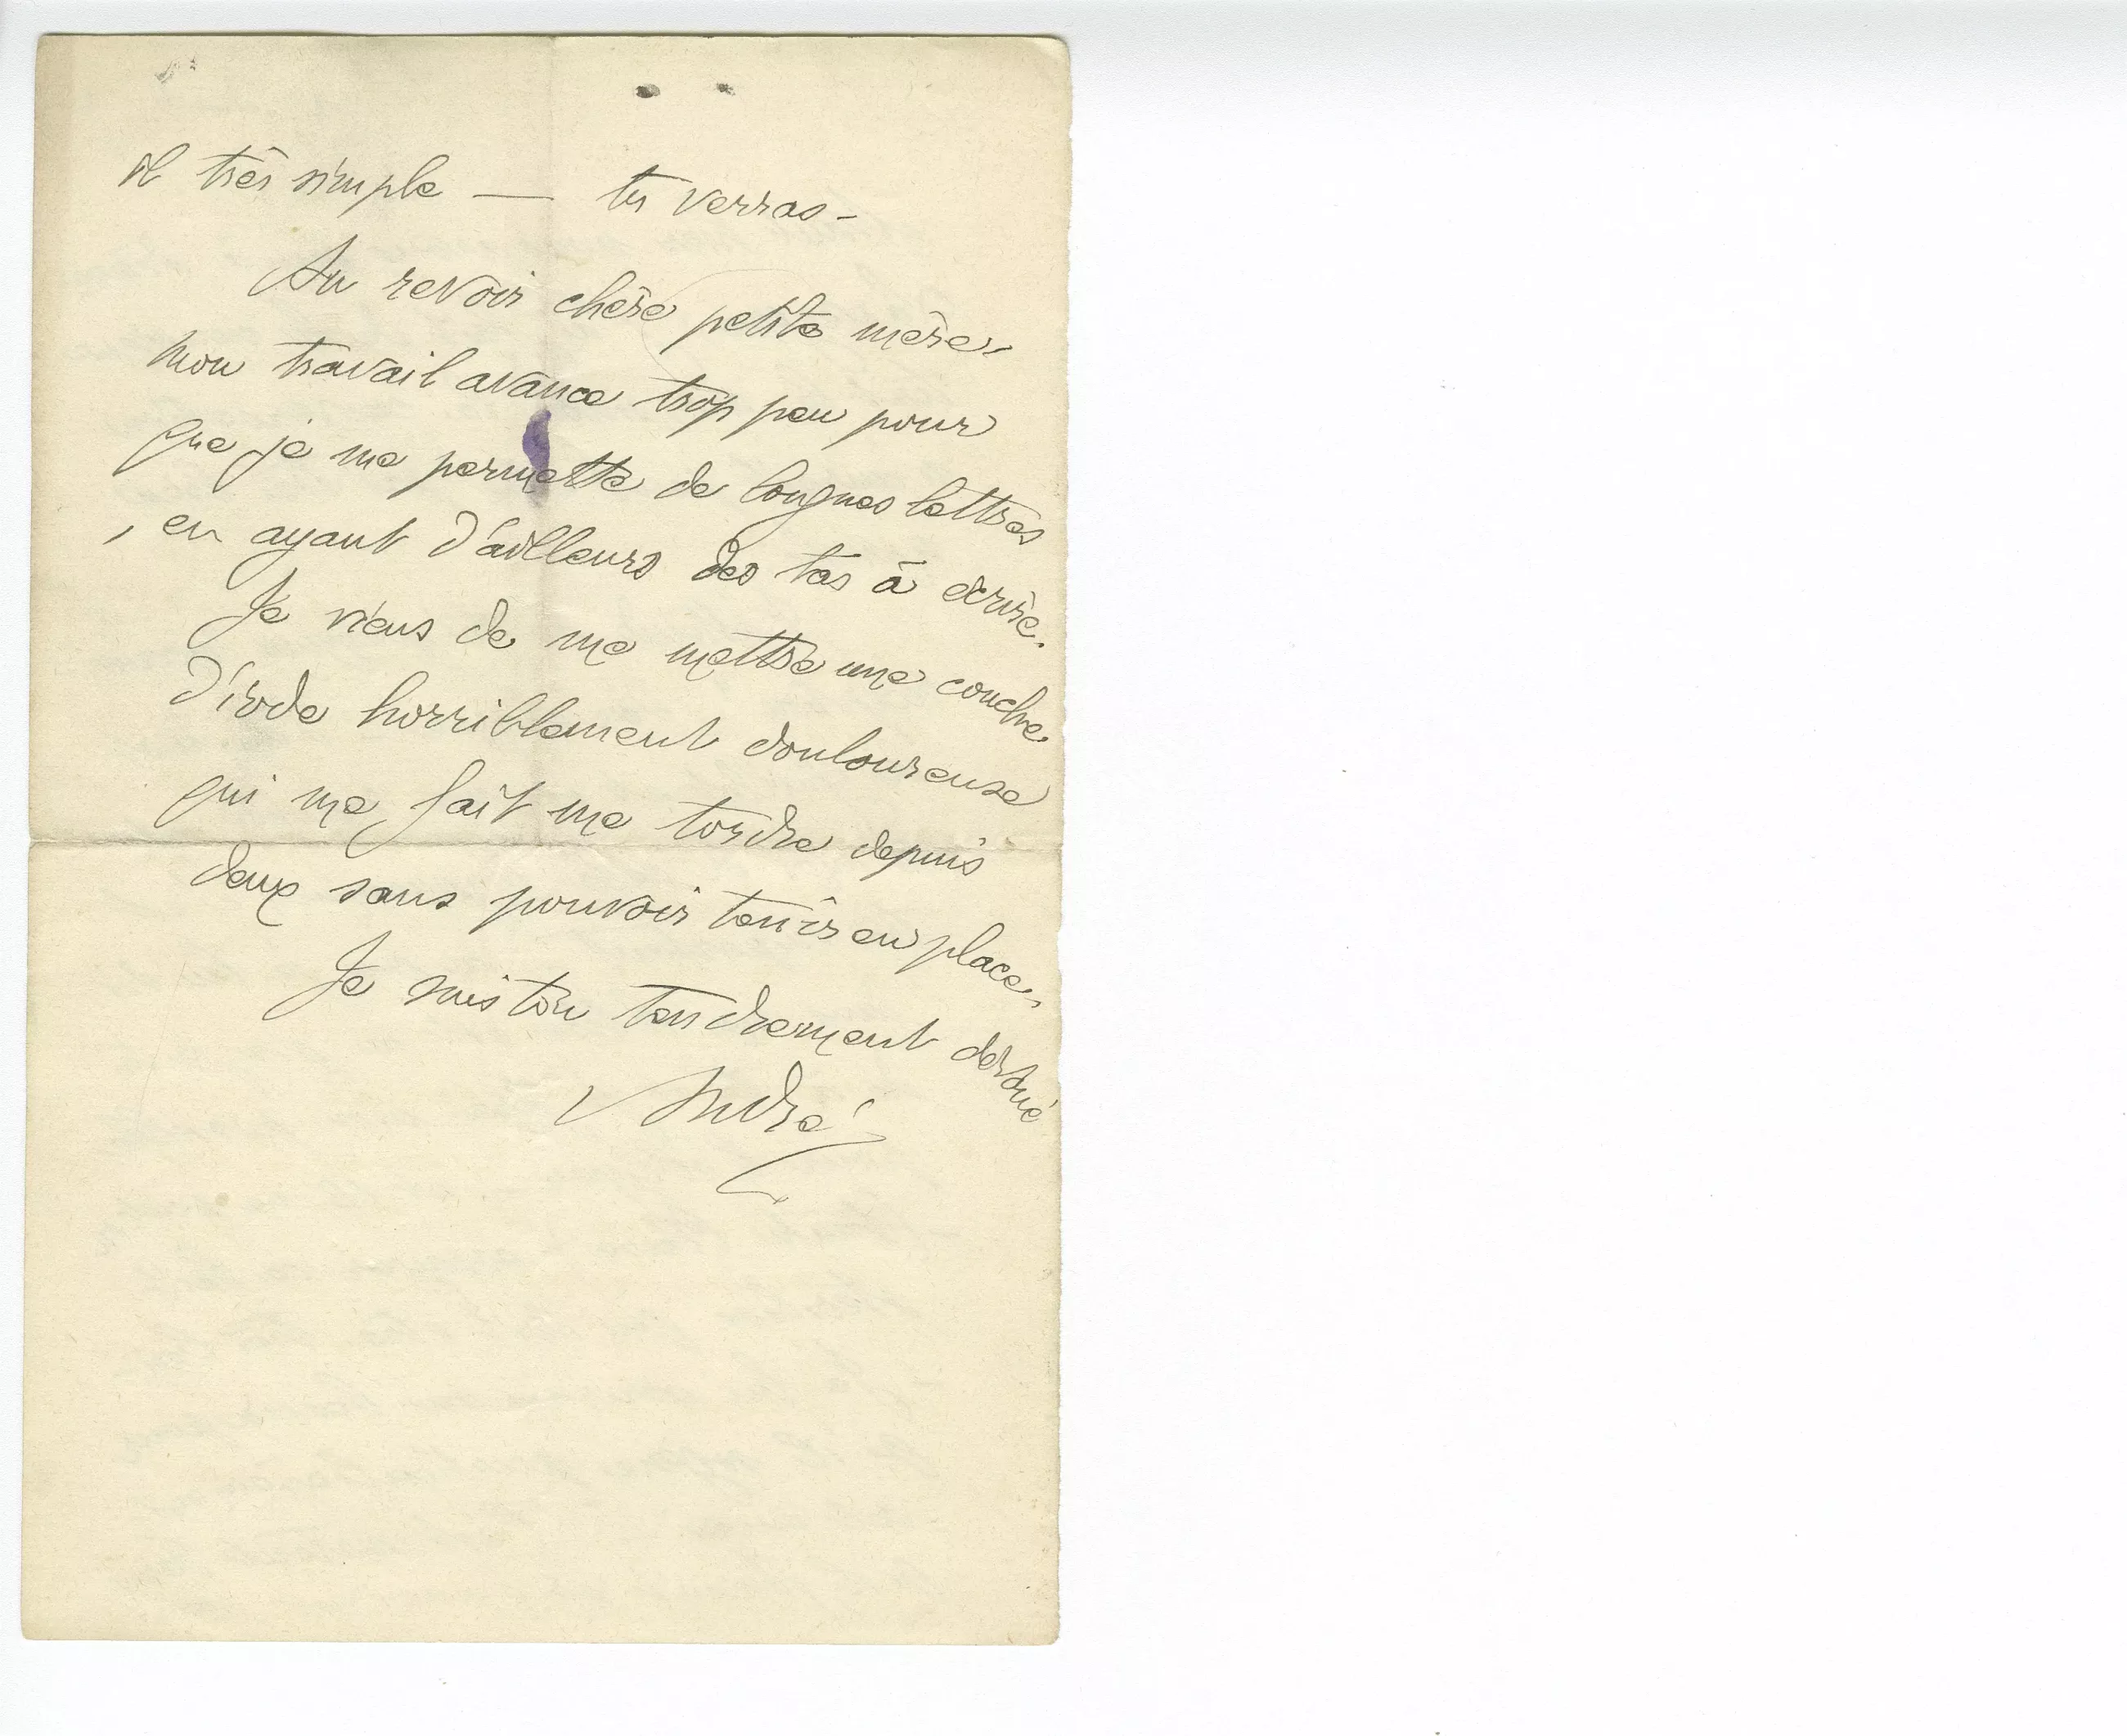 il très simple — tu verras -
Au revoir chère petite mère.
mon travail avance trop peu pour
que je me permette de longues lettres
, en ayant d'ailleurs des tas à écrire.
Je viens de me mettre une couche
d'iode horriblement douloureuse
qui me fait me tordre depuis
deux sans pouvoir tenir en place.
Je suis ton tendrement dévoué
André